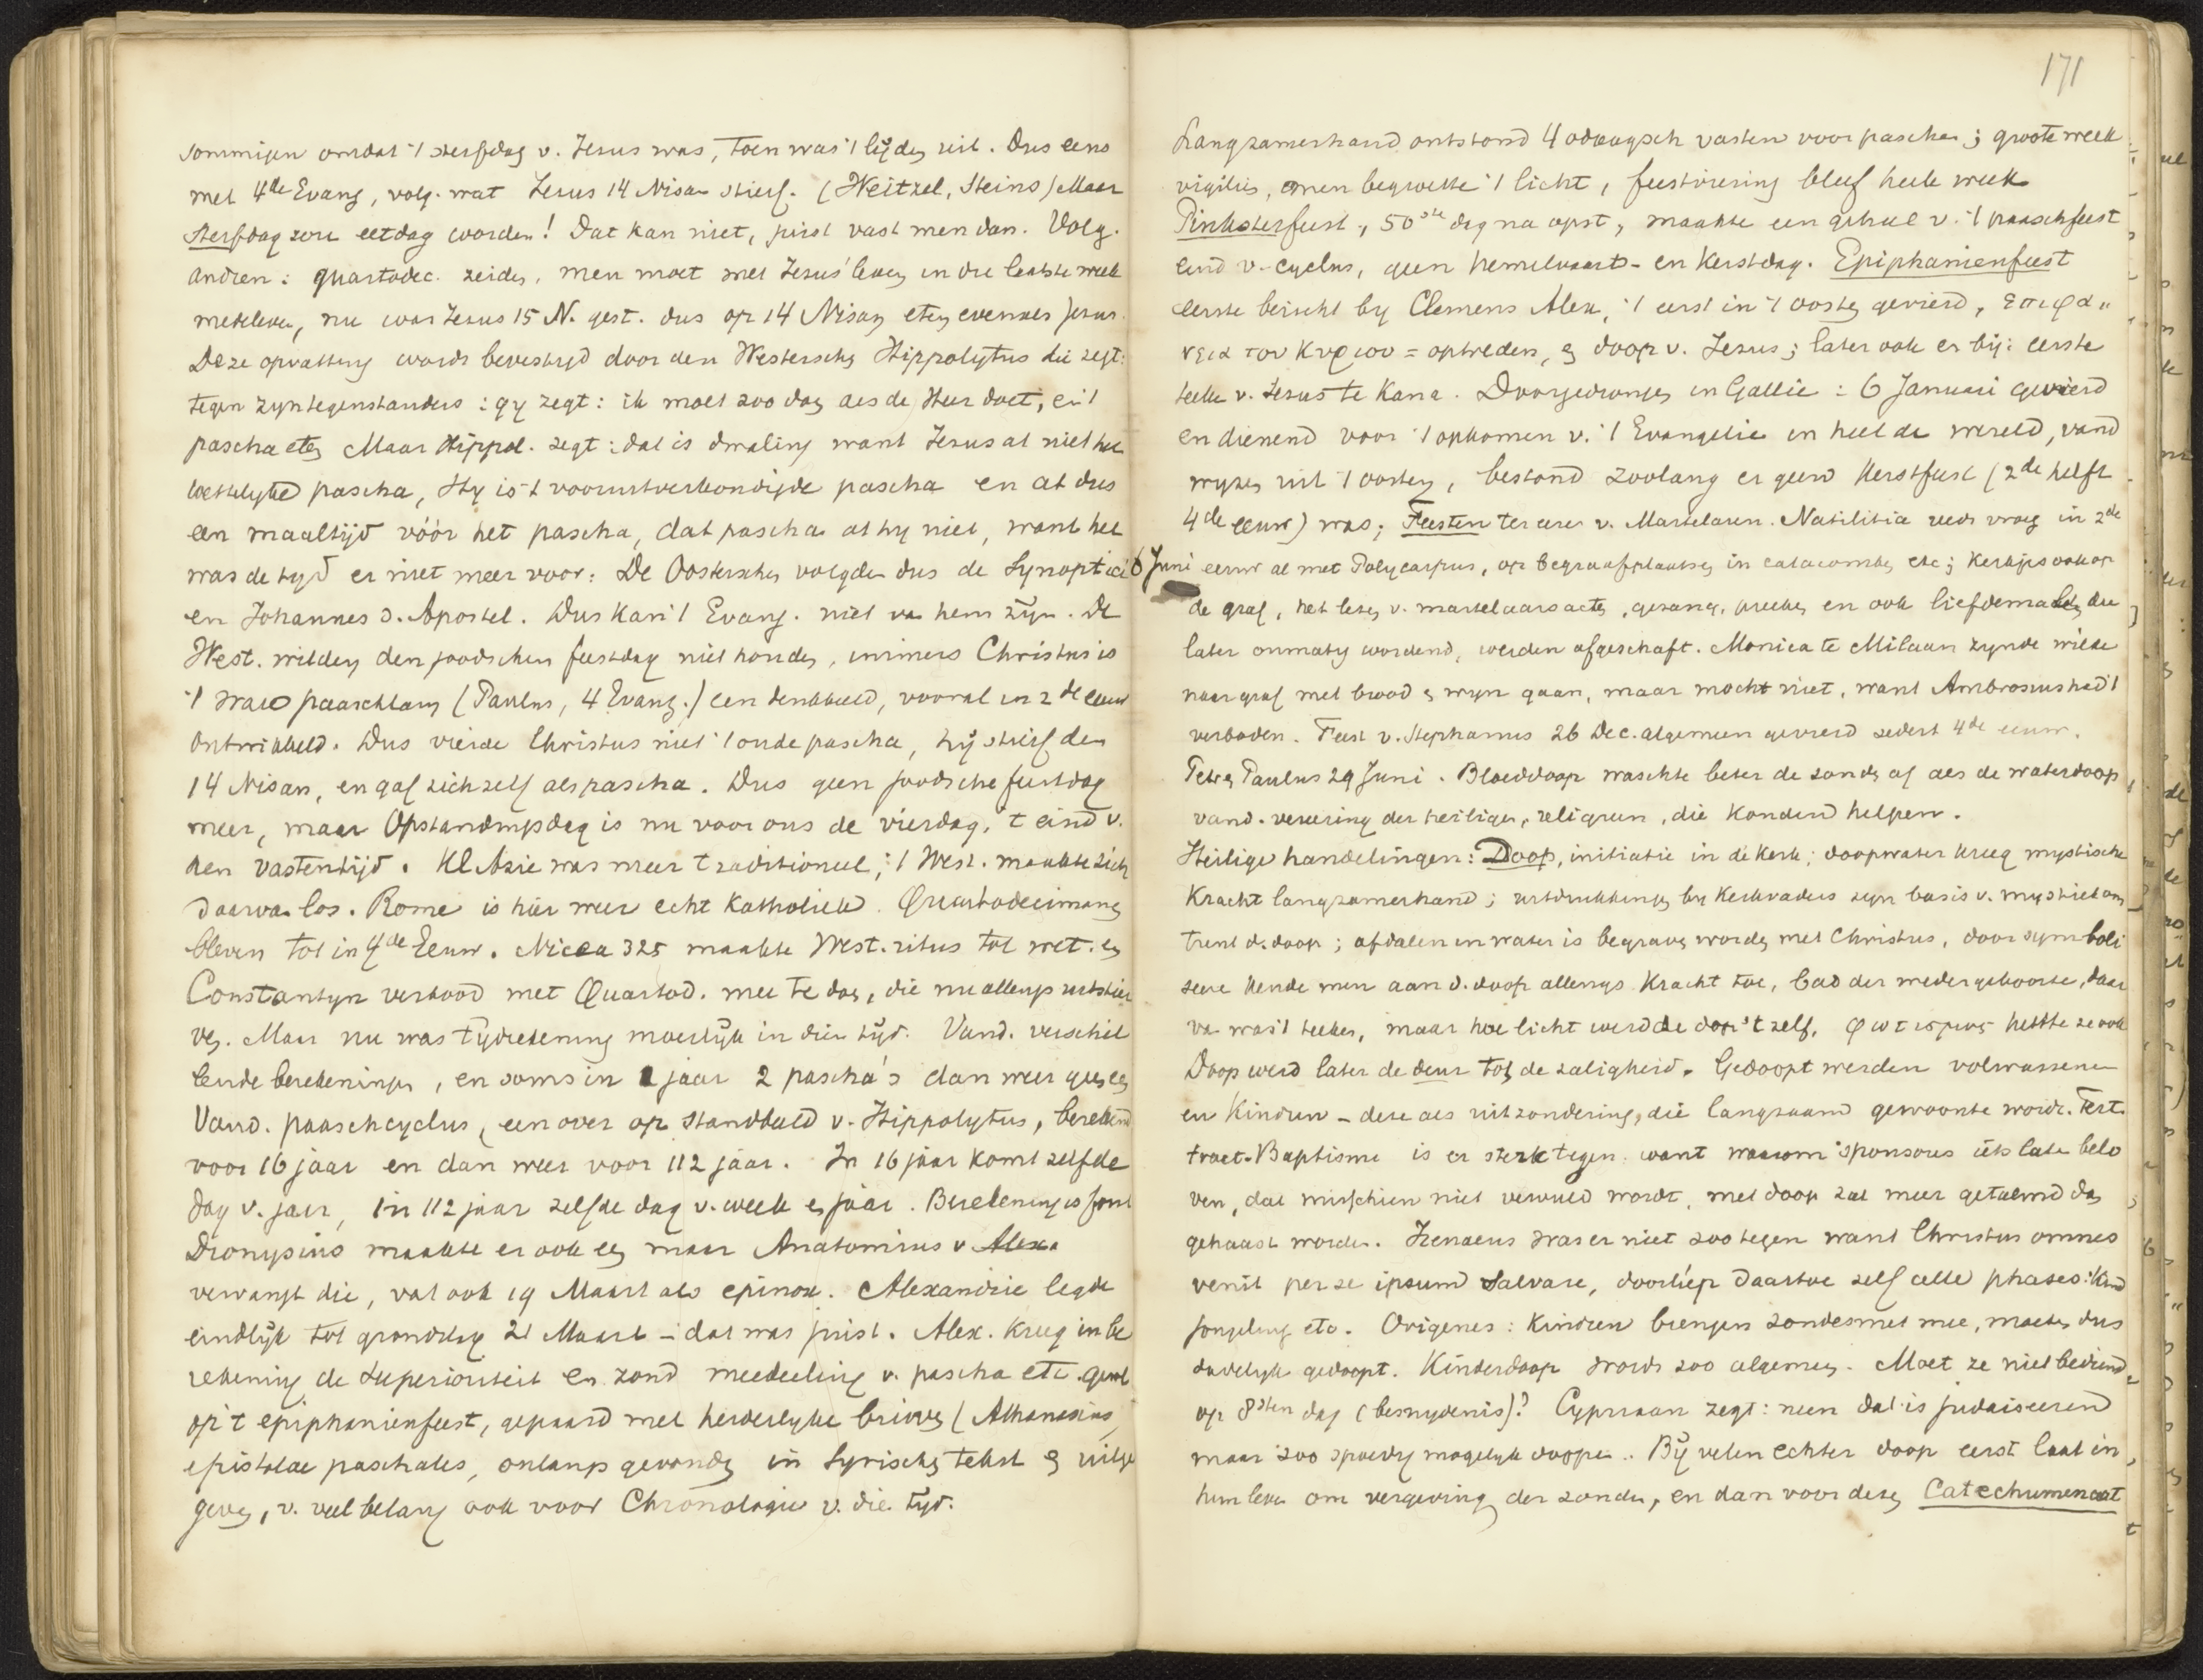 sommigen omdat 't sterfdag v. Jesus was, toen was 't lijden uit. Dus eens
met 4de Evang, volg. wat Jesus 14 Nisan stierf. (Weitzel, Steins) Maar
sterfdag zou eetdag worden! Dat kan niet, juist vast men dan. Volg.
andren: quartodec. zeiden, men moet met Jesus' leven in die laatste week
meeleven, nu was Jesus 15 N. gest. dus op 14 Nisan eten evenals Jesus.
Deze opvatting wordt bevestigd door den Westerschen Hippolytus die zegt:
tegen zyn tegenstanders: gy zegt: ik moet zoo doen als de Heer doet, en 't
pascha eten Maar Hippol. zegt: dat is dwaling want Jesus at niet het
wettelyke pascha, Hy is 't vooruitverkondigde pascha en at dus
een maaltijd vóór het pascha, dat pascha at hy niet, want het
was de tyd er niet meer voor: De Oosterschen volgden dus de Synoptici
en Johannes d. Apostel. Dus kan 't Evang. niet van hem zijn. De
West. wilden den joodschen feestdag niet houden, immers Christus is
't ware paaschlam (Paulus, 4 Evang.) een denkbeeld, vooral in 2de eeuw
ontwikkeld. Dus vierde Christus niet 't oude pascha, hij stierf den
14 Nisan, en gaf zichzelf als pascha. Dus geen joodsche feestdag
meer, maar Opstandingsdag is nu voor ons de vierdag, 't eind v.
den vastentijd. Kl Azie was meer traditioneel, 't West. maakte zich
daarvan los. Rome is hier weer echt katholiek. Quartodecimanen
bleven tot in 4de Eeuw. Nicea 325 maakte West. ritus tot wet. en
Constantyn verbood met Quartod. mee te doen, die nu allengs uitstier
ven. Maar nu was tijdrekening moeilijk in dien tijd. Vand. verschil
lende berekeningen, en soms in 1 jaar 2 pascha's dan weer geen
Vand. paaschcyclus, een over op standbeeld v. Hippolytus, berekend
voor 16 jaar en dan weer voor 112 jaar. In 16 jaar komt zelfde
dag v. jaar, in 112 jaar zelfde dag v. week en jaar. Berekening is fout
Dionysius maakte er ook een maar Anatomius v Alex.
vervangt die, vat ook 19 Maart als epinox. Alexandrie legde
eindlijk tot grondslag 21 Maart – dat was juist. Alex. kreeg in be
rekening de superioriteit en zond meedeeling v. pascha etc.
op 't epiphanienfeest, gepaard met herderlyke brieven (Athanasius,
epistolae paschales, onlangs gevonden in Syrischen tekst en uitge
geven, v. veel belang ook voor Chronologie v. die tijd.
171
Langzamerhand ontstond 40daagsch vasten voor pascha; groote week
vigilies, men begroette 't licht, feestviering bleef heele week
Pinksterfeest, 50ste dag na opst, maakte een geheel v. 't paaschfeest
eind v. cyclus, geen hemelvaart- en Kerstdag. Epiphanienfeest
eerste bericht by Clemens Alex, 't eerst in 't oosten gevierd, επιφα=
νεια του Κυριου = optreden, en doop v. Jesus; later ook er bij: eerste
teeken v. Jesus te Kana. Doorgedrongen in Gallie: 6 Januari gevierd
en dienend voor 't opkomen v. 't Evangelie in heel de wereld, vand
wyzen uit 't oosten, bestond zoolang er geen Kerstfeest (2de helft
4de eeuw) was; Feesten ter eere v. Martelaren. Natilitia reeds vroeg in 2de
6 Juni eeuw al met Polycarpus, op begraafplaatsen in catacomben etc; kerkjes ook op
de graf, het lezen v. martelaarsacten, gezang, preeken en ook liefdemalen die
later onmatig wordend, werden afgeschaft. Monica te Milaan zynde wilde
naar graf met brood en wyn gaan, maar mocht niet, want Ambrosius had 't
verboden. Feest v. Stephanus 26 Dec. algemeen gevierd sedert 4de eeuw.
Petr. en Paulus 29 Juni. Bloeddoop waschte beter de zonden af als de waterdoop,
vand. vereering der heiligen, religieen, die konden helpen.
Heilige handelingen: Doop, initiatie in de Kerk; doopwater kreeg mystische
kracht langzamerhand; uitdrukkingen by Kerkvaders zyn basis v. mystiek om
trent d. doop; afdalen in water is begraven worden met Christus, door symboli
seere kende men aan d. doop allengs kracht toe, bad der wedergeboorte, daar
van was 't teeken, maar hoe licht werd de doop 't zelf, φωτισμος heette ze ook
Doop werd later de deur tot de zaligheid. Gedoopt werden volwassenen
en Kindren – deze als uitzondering, die langzaam gewoonte wordt. Tert.
tract. Baptisme is er sterk tegen. want waarom sponsores iets laten belo
ven, dat misschien niet vervuld wordt, met doop zal meer getalmd dan
gehaast worden. Irenaeus was er niet zoo tegen want Christus omnes
venit per se ipsum salvare, doorliep daartoe zelf alle phases: kind
jongeling etc. Origenes: kindren brengen zondesmet mee, moeten dus
dadelyk gedoopt. Kinderdoop wordt zoo algemeen. Moet ze niet bediend
op 8sten dag (besnydenis)? Cypriaan zegt: neen dat is judaiseerend
maar zoo spoedig mogelyk doopen. Bij velen echter doop eerst laat in
hun leven om vergeving der zonden, en dan voor dezen Catechumenaat